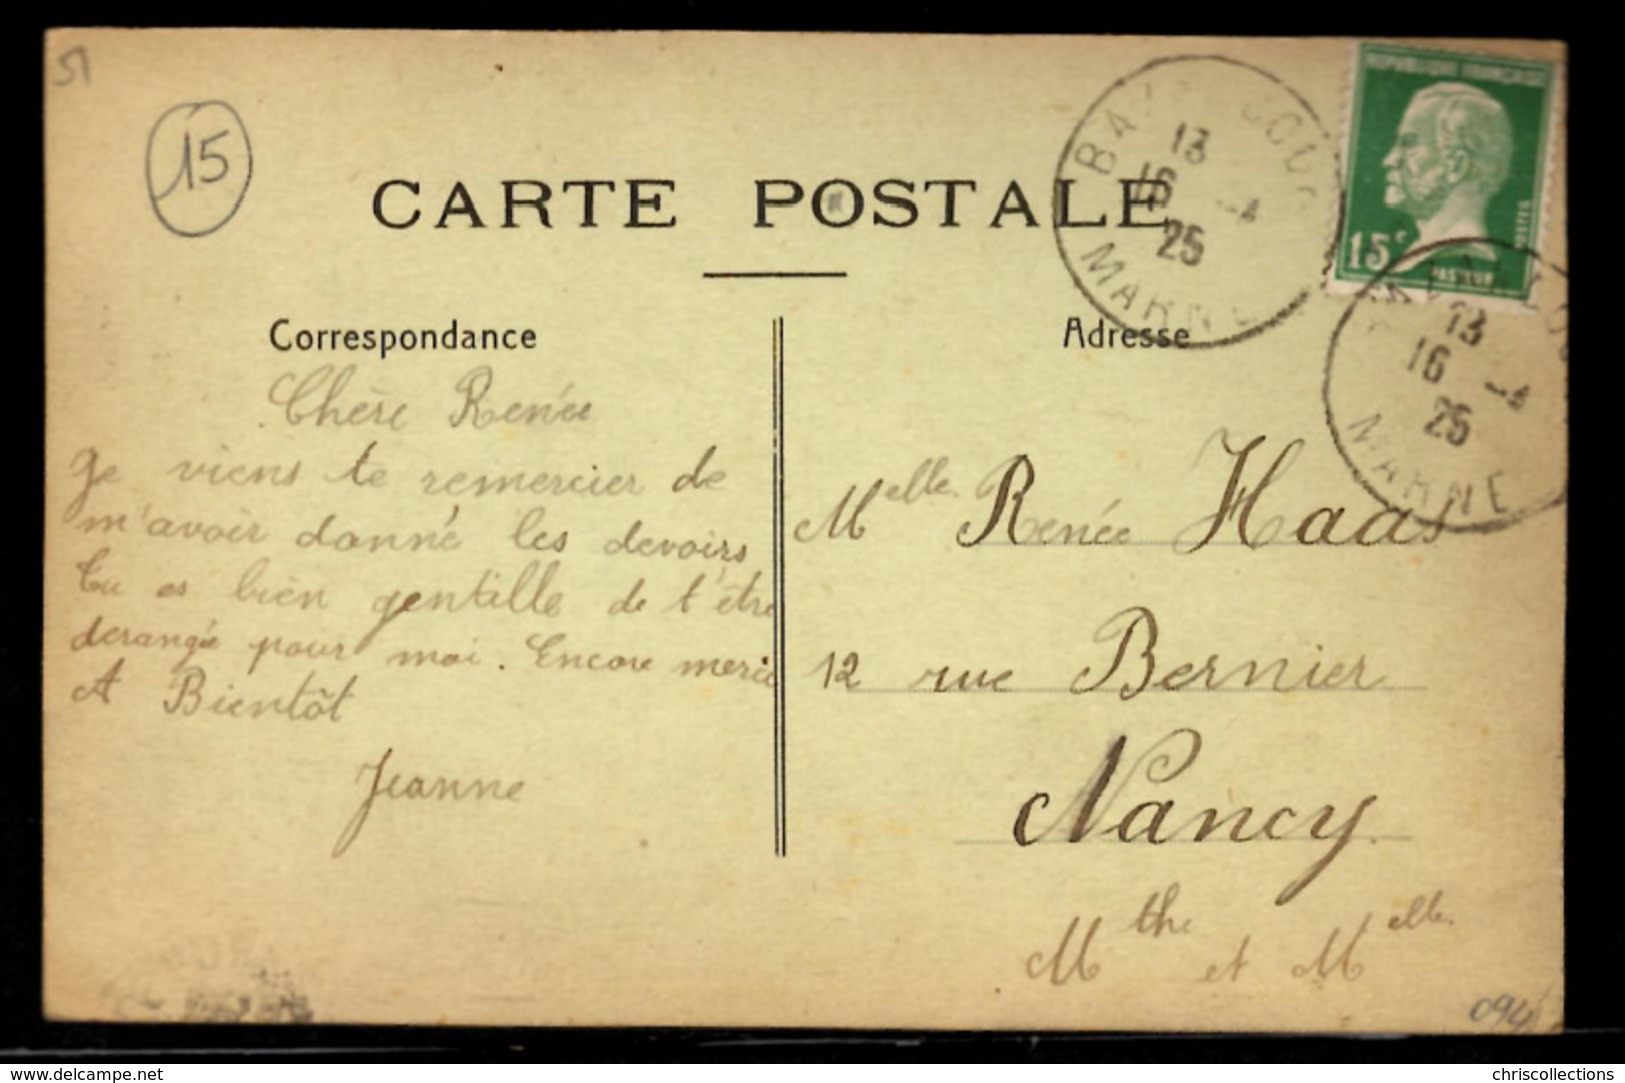 51
15
CARTE POSTALE
REPUBLIQUE FRANÇAISE
15c
POSTES
PASTEUR
13
16 -4
25
MARNE
13
16 -4
25
MARNE
Correspondance
Chère Renée
Je viens te remercier de
m'avoir donné les devoirs
tu es bien gentille de t'être
derangée pour moi. Encore merci
A Bientôt
Jeanne
Adresse
Melle Renée Haas
12 rue Bernier
Nancy.
Mthe et Melle.
094
delcampe.net
chriscollections